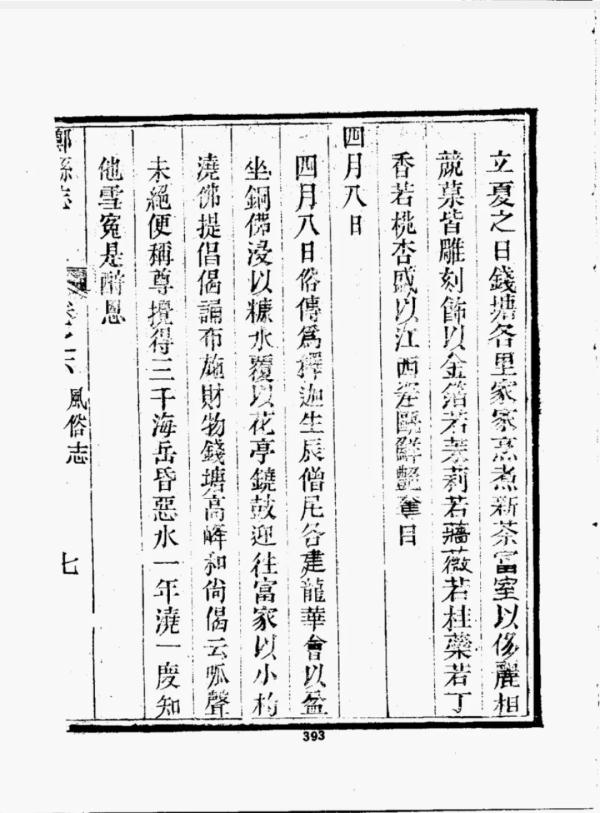 立夏之日錢塘各里家家烹煮新茶富室以侈麗相
競菓皆雕刻飾以金箔若茉莉若薔薇若桂蘂若丁
香若桃杏盛以江西窰甌鮮艶奪目
四月八日
四月八日俗傳爲釋迦生辰僧尼各建龍華會以盆
坐銅佛浸以糖水覆以花亭鐃鼓迎往富家以小杓
澆佛提倡偈誦布施財物錢塘高峰和尙偈云呱聲
未絕便稱尊攪得三千海岳昏惡水一年澆一度知
他雪寃是酧恩
縣志 卷之六 風俗志 七
393